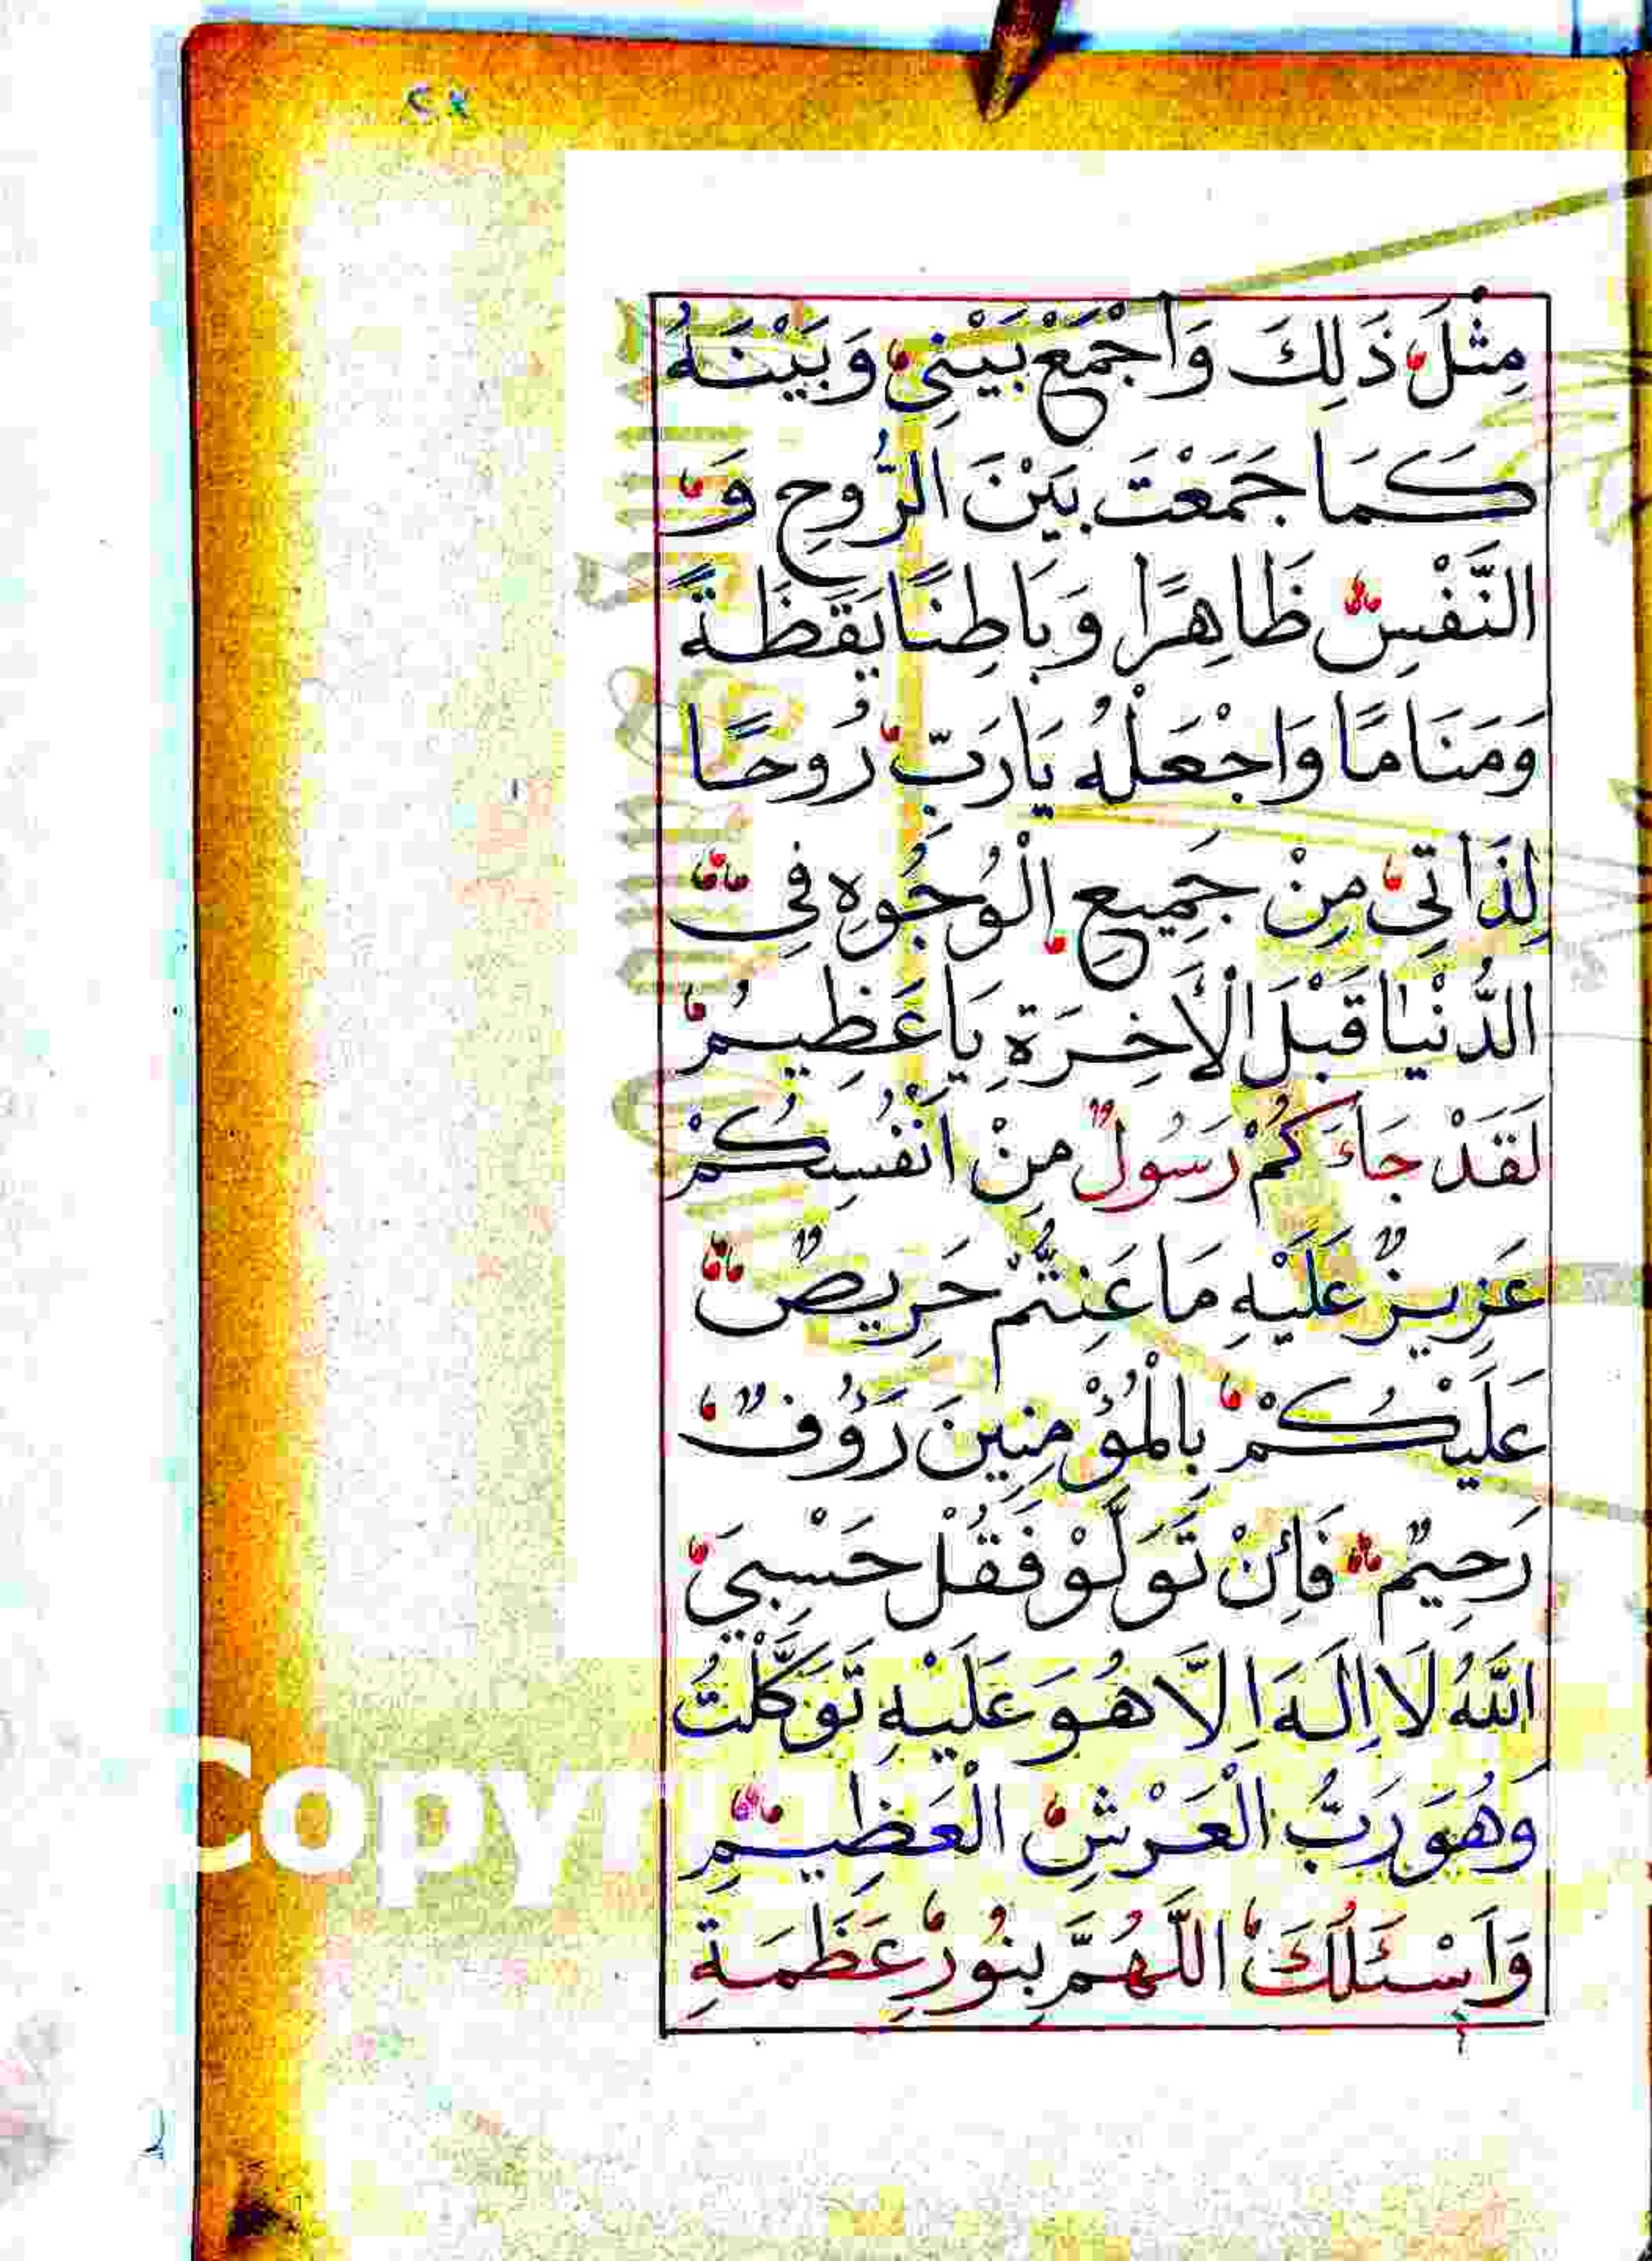 ٢٧
مِثْلَ ذَلِكَ وَاجْمَعْ بَيْنِي وَبَيْنَهُ
كَمَا جَمَعْتَ بَيْنَ الرُّوحِ وَ
النَّفْسِ ظَاهِرًا وَبَاطِنًا يَقَظَةً
وَمَنَامًا وَاجْعَلْهُ يَارَبِّ رُوحًا
لِذَاتِي مِنْ جَمِيعِ الْوُجُوهِ فِي
الدُّنْيَا قَبْلَ الْأَخِرَةِ يَا عَظِيمُ
لَقَدْ جَاءَكُمْ رَسُولٌ مِنْ اَنْفُسِكُمْ
عَزِيزٌ عَلَيْهِ مَا عَنِتُّمْ حَرِيصٌ
عَلَيْكُمْ بِالْمُؤْمِنِينَ رَؤُفٌ
رَحِيمٌ فَاِنْ تَوَلَّوْ فَقُلْ حَسْبِيَ
اللّٰهُ لَا اِلَهَ اِلَّا هُوَ عَلَيْهِ تَوَكَّلْتُ
وَهُوَ رَبُّ الْعَرْشِ الْعَظِيمِ
وَاَسْئَلُكَ اللَّهُمَّ بِنُورِ عَظَمَةِ
Copyri